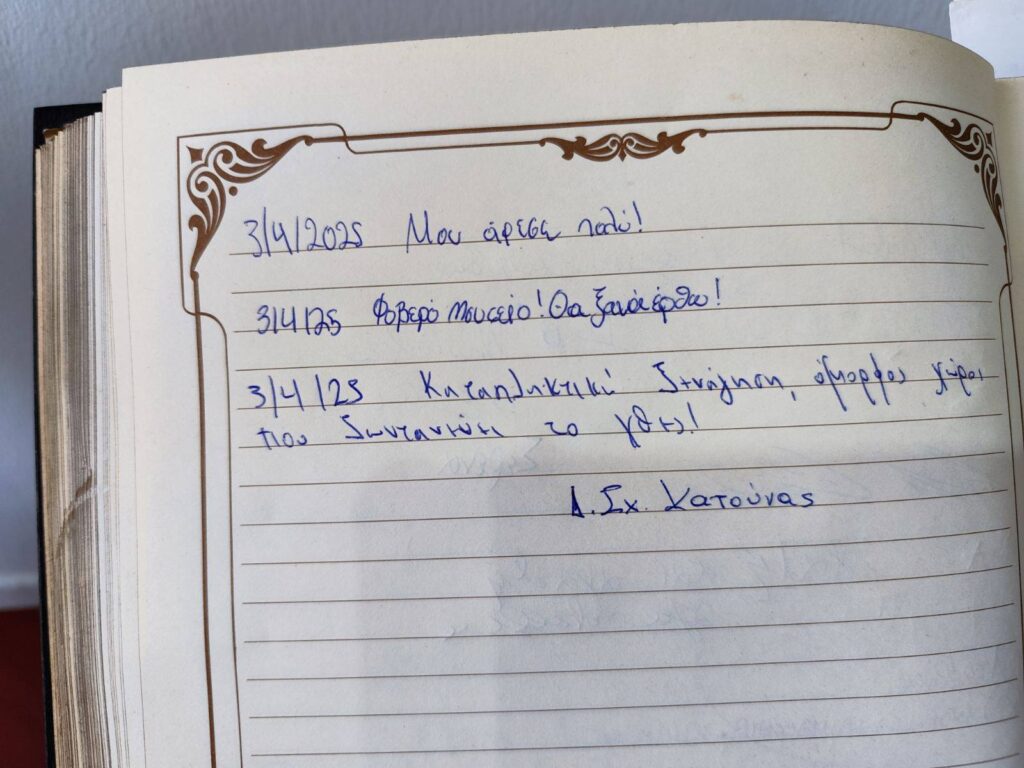 3/4/2025 Μου άρεσε πολύ!
3/4/25 Φοβερό Μουσείο! Θα ξαναέρθω!
3/4/25 Καταπληκτική ξενάγηση, όμορφος χώρος
που ζωντανεύει το χθες!
Δ.Σχ. Κατούνας